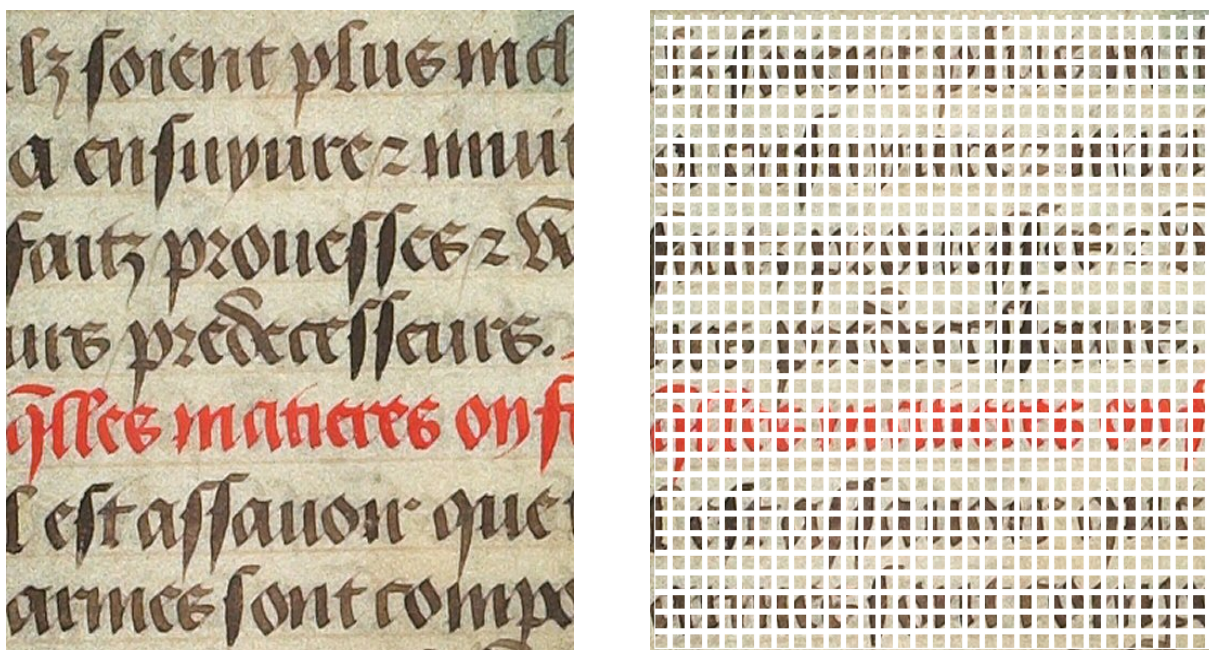 lz soient plus incl
a ensuyure ⁊ mult
faitz prouesses ⁊ v
urs predecesseurs.
q̃lles matieres on f
l est assauoir que
armes sont compo